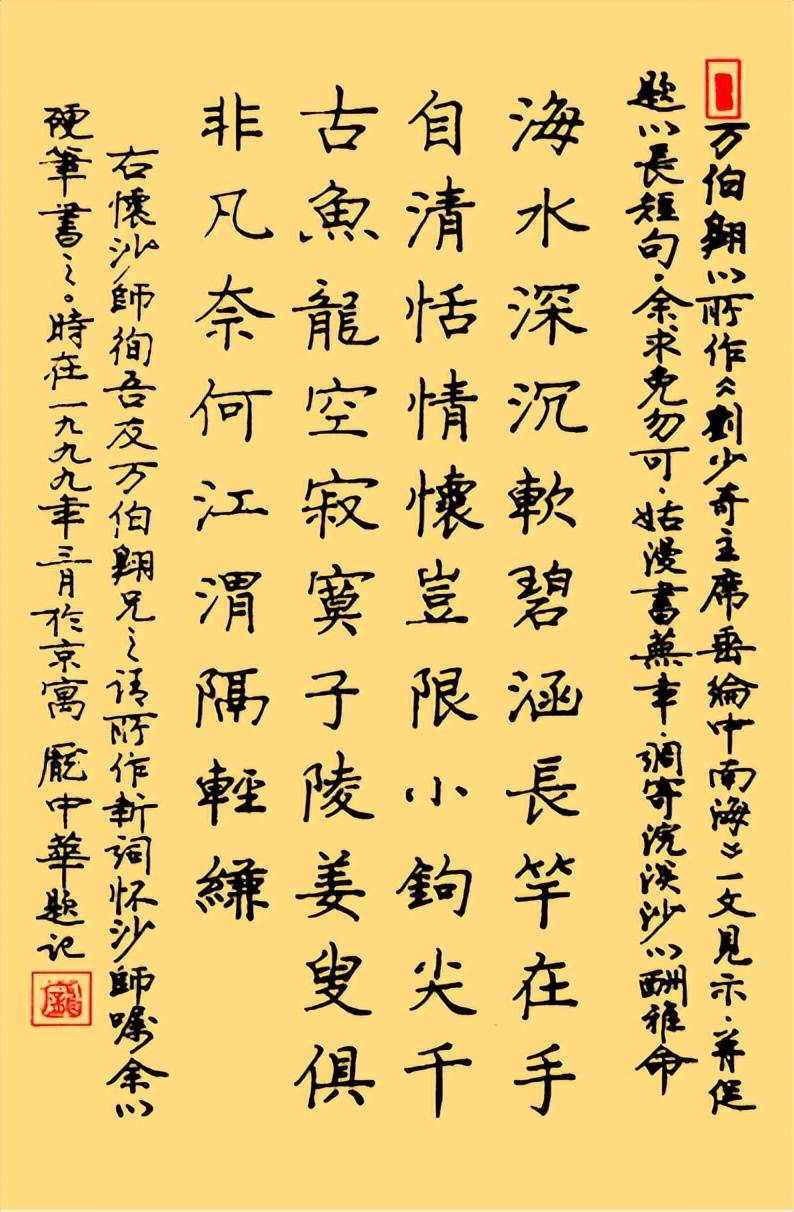 万伯翱以所作《刘少奇主席垂綸中南海》一文見示·并促
题以長短句·余求免勿可·姑漫書蕪章·調寄浣溪沙以酬雅命
海水深沉軟碧涵長竿在手
自清恬情懷豈限小鉤尖千
古魚龍空寂寞子陵姜叟俱
非凡奈何江渭隔輕縑
右懷沙師徇吾及万伯翱兄之请所作新詞怀沙師嘱余以
硬筆書之。時在一九九九年三月於京寓 龐中華题记